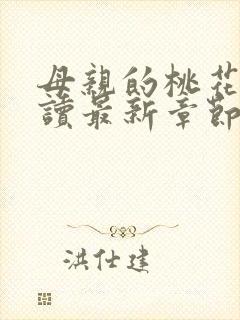 母親的桃花
讀最新章節
洪仕建